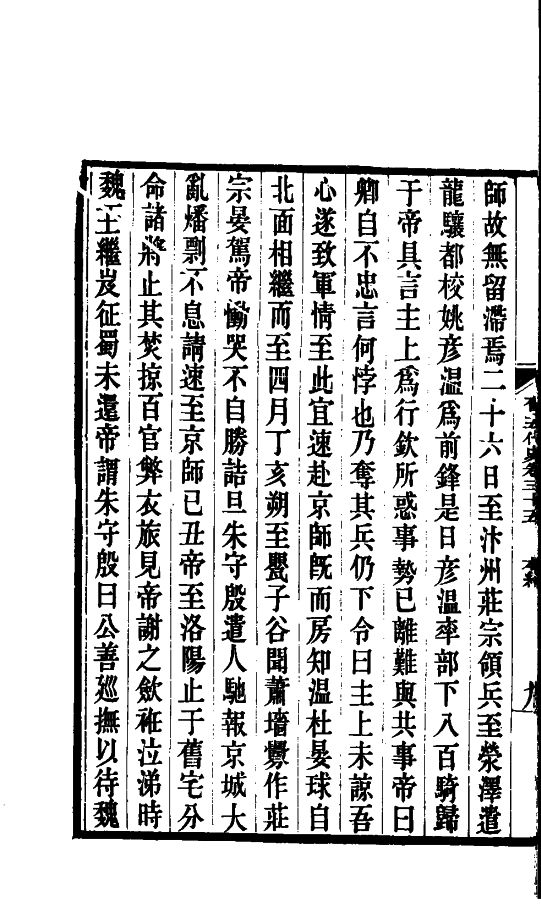 師故無留滯焉二十六日至汴州莊宗領兵至滎澤遣
龍驤都校姚彥溫爲前鋒是日彥溫率部下八百騎歸
于帝具言主上爲行欽所惑事勢已離難與共事帝曰
卿自不忠言何悖也乃奪其兵仍下令曰主上未諒吾
心遂致軍情至此宜速赴京師旣而房知溫杜晏球自
北面相繼而至四月丁亥朔至甖子谷聞蕭墻釁作莊
宗晏駕帝慟哭不自勝詰旦朱守殷遣人馳報京城大
亂燔剽不息請速至京師已丑帝至洛陽止于舊宅分
命諸將止其焚掠百官弊衣旅見帝謝之斂袵泣涕時
魏王繼岌征蜀未還帝謂朱守殷曰公善廵撫以待魏